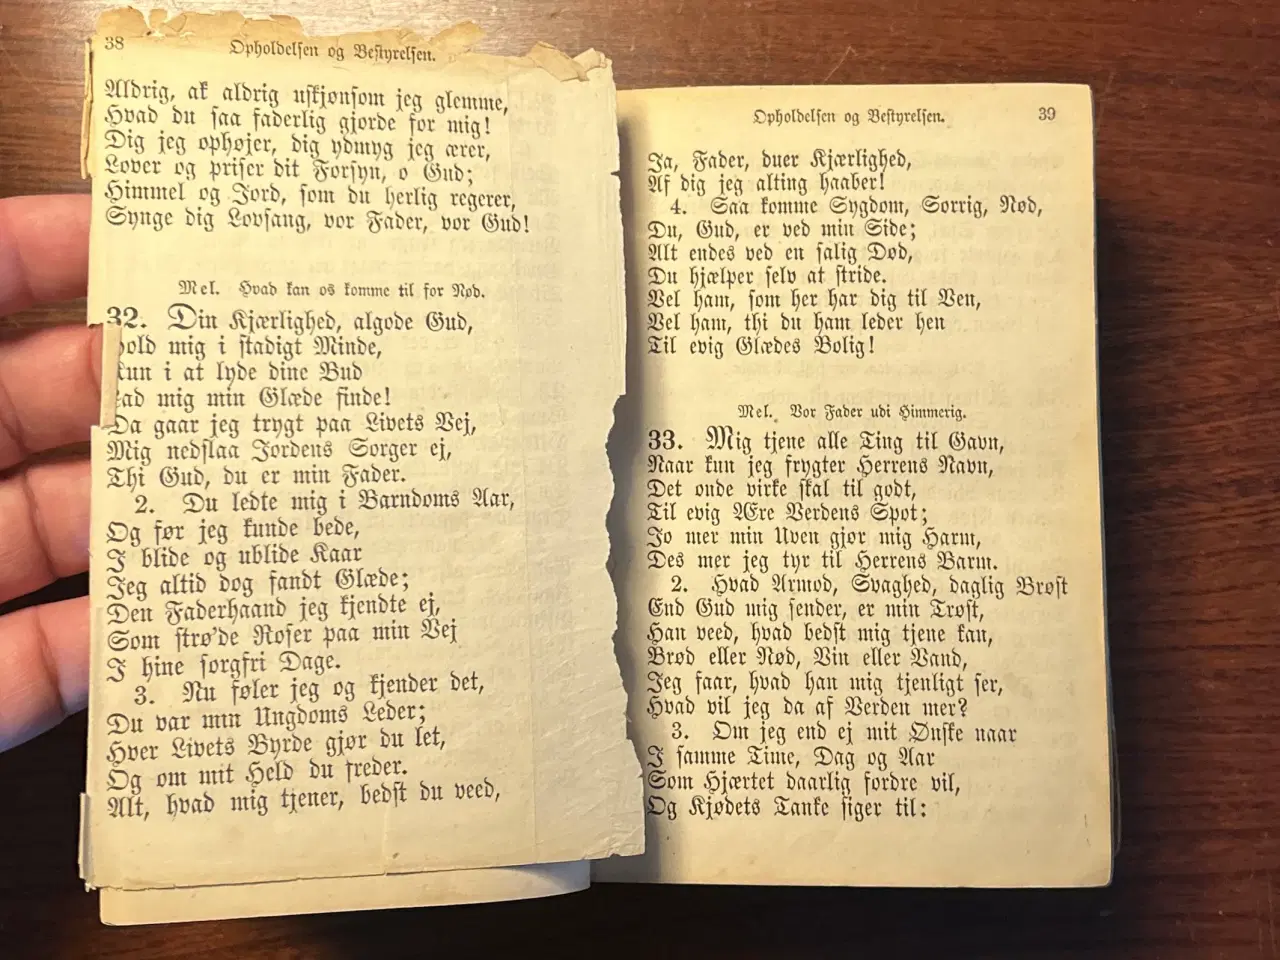 38
Opholdelsen og Bestyrelsen.
Aldrig, ak aldrig uskjønsom jeg glemme,
Hvad du saa faderlig gjorde for mig!
Dig jeg ophøjer, dig ydmyg jeg ærer,
Lover og priser dit Forsyn, o Gud;
Himmel og Jord, som du herlig regerer,
Synge dig Lovsang, vor Fader, vor Gud!
Mel. Hvad kan os komme til for Nød.
32. Din Kjærlighed, algode Gud,
hold mig i stadigt Minde,
kun i at lyde dine Bud
Lad mig min Glæde finde!
Da gaar jeg trygt paa Livets Vej,
Mig nedslaa Jordens Sorger ej,
Thi Gud, du er min Fader.
2. Du ledte mig i Barndoms Aar,
Og før jeg kunde bede,
I blide og ublide Kaar
Jeg altid dog fandt Glæde;
Den Faderhaand jeg kjendte ej,
Som strø'de Roser paa min Vej
I hine sorgfri Dage.
3. Nu føler jeg og kjender det,
Du var min Ungdoms Leder;
Hver Livets Byrde gjør du let,
Og om mit Held du freder.
Alt, hvad mig tjener, bedst du veed,
Opholdelsen og Bestyrelsen.
39
Ja, Fader, duer Kjærlighed,
Af dig jeg alting haaber!
4. Saa komme Sygdom, Sorrig, Nød,
Du, Gud, er ved min Side;
Alt endes ved en salig Død,
Du hjælper selv at stride.
Vel ham, som her har dig til Ven,
Vel ham, thi du ham leder hen
Til evig Glædes Bolig!
Mel. Vor Fader udi Himmerig.
33. Mig tjene alle Ting til Gavn,
Naar kun jeg frygter Herrens Navn,
Det onde virke skal til godt,
Til evig Ære Verdens Spot;
Jo mer min Uven gjør mig Harm,
Des mer jeg tyr til Herrens Barm.
2. Hvad Armod, Svaghed, daglig Brøst
End Gud mig sender, er min Trøst,
Han veed, hvad bedst mig tjene kan,
Brød eller Nød, Vin eller Vand,
Jeg faar, hvad han mig tjenligt ser,
Hvad vil jeg da af Verden mer?
3. Om jeg end ej mit Ønske naar
I samme Time, Dag og Aar
Som Hjærtet daarlig fordre vil,
Og Kjødets Tanke siger til: